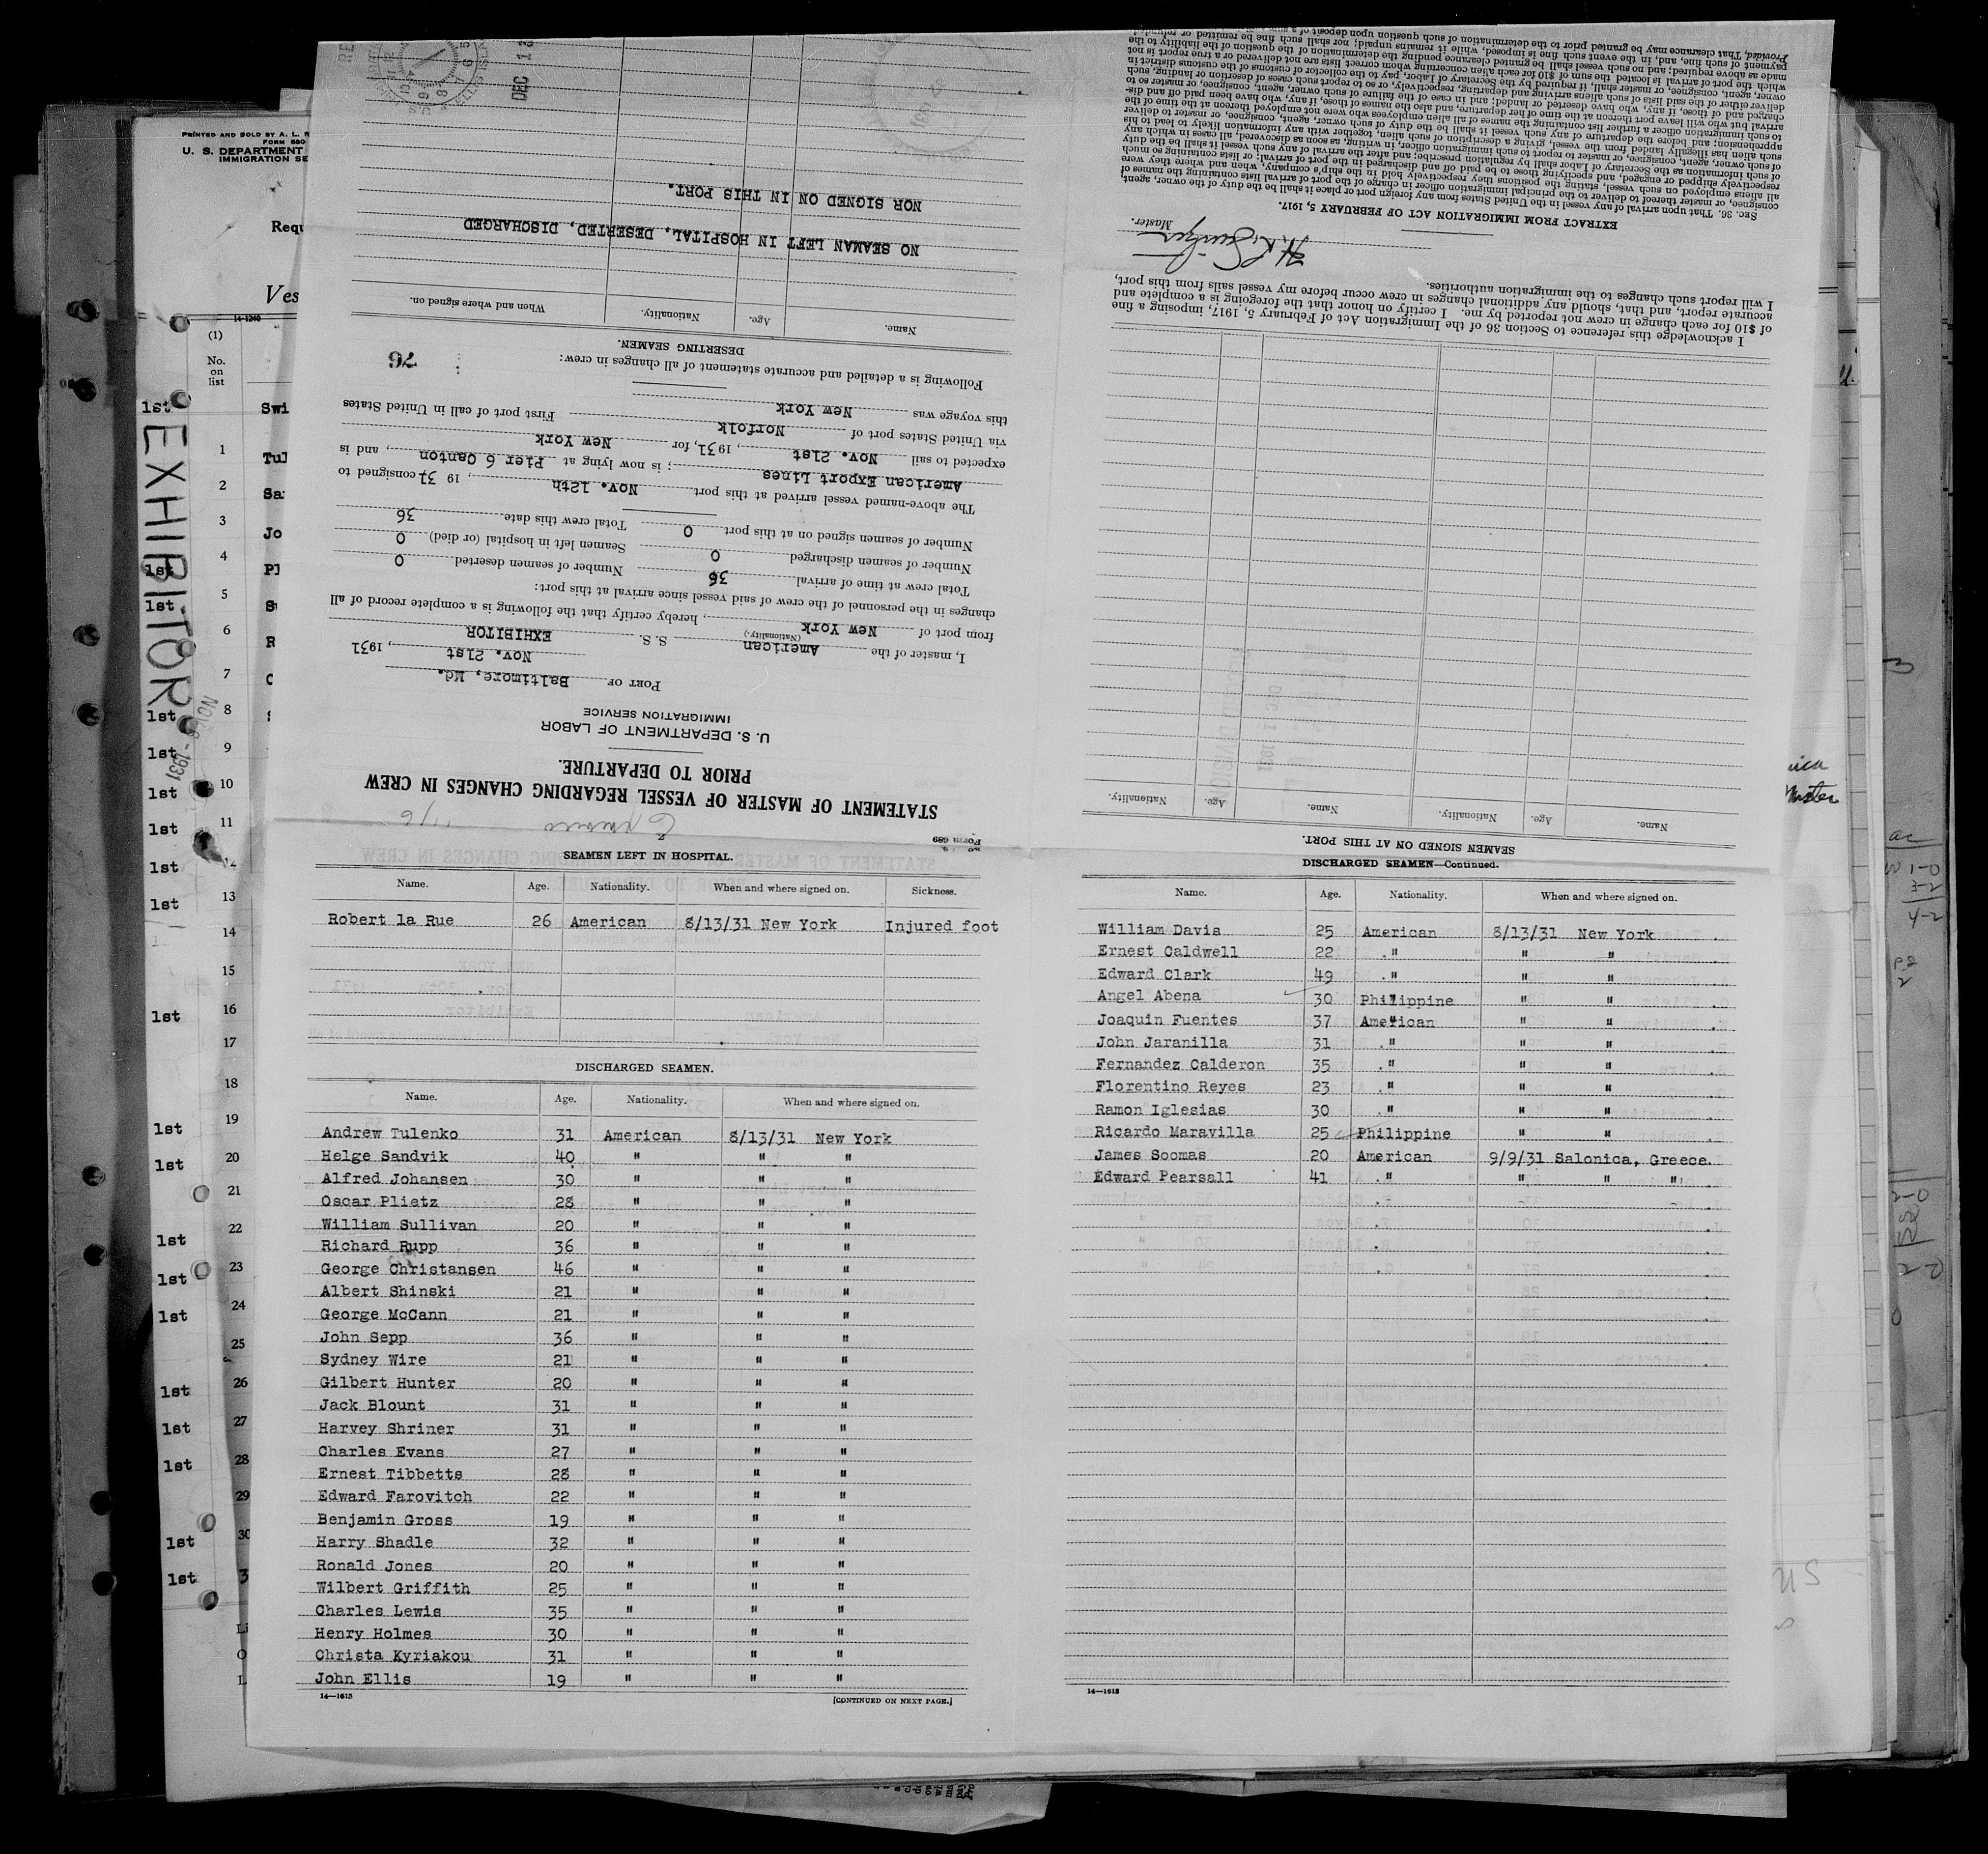 PRINTED AND SOLD BY A. L.
FORM 680
U. S. DEPARTMENT
IMMIGRATION SE
14-1240
(1)
No.
on
list
EXHIBITOR
NOV 6 - 1931
1st
1
2
3
4
1st
5
1st
6
7
1st
8
1st
9
1st
10
1st
11
1st
12
1st
13
14
15
1st
16
17
18
1st
19
1st
20
21
1st
22
1st
23
1st
24
25
1st
26
1st
27
1st
28
29
1st
30
1st
Form 689
STATEMENT OF MASTER OF VESSEL REGARDING CHANGES IN CREW
PRIOR TO DEPARTURE.
U. S. DEPARTMENT OF LABOR
IMMIGRATION SERVICE
PORT OF Baltimore, Md.
Nov. 21st, 1931
I, master of the American S. S. EXHIBITOR
(Nationality.)
from port of New York, hereby certify that the following is a complete record of all
changes in the personnel of the crew of said vessel since arrival at this port:
Total crew at time of arrival 36 Number of seamen deserted 0
Number of seamen discharged 0 Seamen left in hospital (or died) 0
Number of seamen signed on at this port 0 Total crew this date 36
The above-named vessel arrived at this port Nov. 12th, 1931 consigned to
American Export Lines; is now lying at Pier 6 Canton, and is
expected to sail Nov. 21st, 1931, for New York
via United States port of Norfolk
this voyage was New York First port of call in United States
Following is a detailed and accurate statement of all changes in crew:
76
DESERTING SEAMEN.
Name. Age. Nationality. When and where signed on.
NO SEAMAN LEFT IN HOSPITAL, DESERTED, DISCHARGED
NOR SIGNED ON IN THIS PORT.
DEC 1
SEAMEN SIGNED ON AT THIS PORT.
Name. Age. Nationality. Name. Age. Nationality.
I acknowledge this reference to Section 36 of the Immigration Act of February 5, 1917, imposing a fine
of $10 for each change in crew not reported by me. I certify on honor that the foregoing is a complete and
accurate report, and that, should any additional changes in crew occur before my vessel sails from this port,
I will report such changes to the immigration authorities.
Master.
EXTRACT FROM IMMIGRATION ACT OF FEBRUARY 5, 1917.
SEC. 36. That upon arrival of any vessel in the United States from any foreign port or place it shall be the duty of the owner, agent,
consignee, or master thereof to deliver to the principal immigration officer in charge of the port of arrival lists containing the names of
all aliens employed on such vessel, stating the positions they respectively hold in the ship's company, when and where they were
respectively shipped or engaged, and specifying those to be paid off and discharged in the port of arrival; or lists containing so much
of such information as the Secretary of Labor shall by regulation prescribe; and after the arrival of any such vessel it shall be the duty
of such owner, agent, consignee, or master to report to such immigration officer, in writing, as soon as discovered, all cases in which any
such alien has illegally landed from the vessel, giving a description of such alien, together with any information likely to lead to his
apprehension; and before the departure of any such vessel it shall be the duty of such owner, agent, consignee, or master to deliver
to such immigration officer a further list containing the names of all alien employees who were not employed thereon at the time of the
arrival but who will leave port thereon at the time of her departure, and also the names of those, if any, who have been paid off and dis-
charged and of those, if any, who have deserted or landed; and in case of the failure of such owner, agent, consignee, or master so to
deliver either of the said lists of such aliens arriving and departing, respectively, or so to report such cases of desertion or landing, such
owner, agent, consignee, or master shall, if required by the Secretary of Labor, pay to the collector of customs of the customs district in
which the port of arrival is located the sum of $10 for each alien concerning whom correct lists are not delivered or a true report is not
made as above required; and no such vessel shall be granted clearance pending the determination of the question of the liability to the
payment of such fine, and, in the event such fine is imposed, while it remains unpaid; nor shall such fine be remitted or refunded:
Provided, That clearance may be granted prior to the determination of such question upon deposit of a sum
SEAMEN LEFT IN HOSPITAL.
Name. Age. Nationality. When and where signed on. Sickness.
Robert la Rue 26 American 8/13/31 New York Injured foot
DISCHARGED SEAMEN.
Name. Age. Nationality. When and where signed on.
Andrew Tulenko 31 American 8/13/31 New York
Helge Sandvik 40 " " "
Alfred Johansen 30 " " "
Oscar Plietz 28 " " "
William Sullivan 20 " " "
Richard Rupp 36 " " "
George Christansen 46 " " "
Albert Shinski 21 " " "
George McCann 21 " " "
John Sepp 36 " " "
Sydney Wire 21 " " "
Gilbert Hunter 20 " " "
Jack Blount 31 " " "
Harvey Shriner 31 " " "
Charles Evans 27 " " "
Ernest Tibbetts 28 " " "
Edward Farovitch 22 " " "
Benjamin Gross 19 " " "
Harry Shadle 32 " " "
Ronald Jones 20 " " "
Wilbert Griffith 25 " " "
Charles Lewis 35 " " "
Henry Holmes 30 " " "
Christa Kyriakou 31 " " "
John Ellis 19 " " "
14—1613 [CONTINUED ON NEXT PAGE.]
DISCHARGED SEAMEN—Continued.
Name. Age. Nationality. When and where signed on.
William Davis 25 American 8/13/31 New York
Ernest Caldwell 22 " " "
Edward Clark 49 " " "
Angel Abena 30 Philippine " "
Joaquin Fuentes 37 American " "
John Jaranilla 31 " " "
Fernandez Calderon 35 " " "
Florentino Reyes 23 " " "
Ramon Iglesias 30 " " "
Ricardo Maravilla 25 Philippine " "
James Soomas 20 American 9/9/31 Salonica, Greece
Edward Pearsall 41 " " " "
14—1613